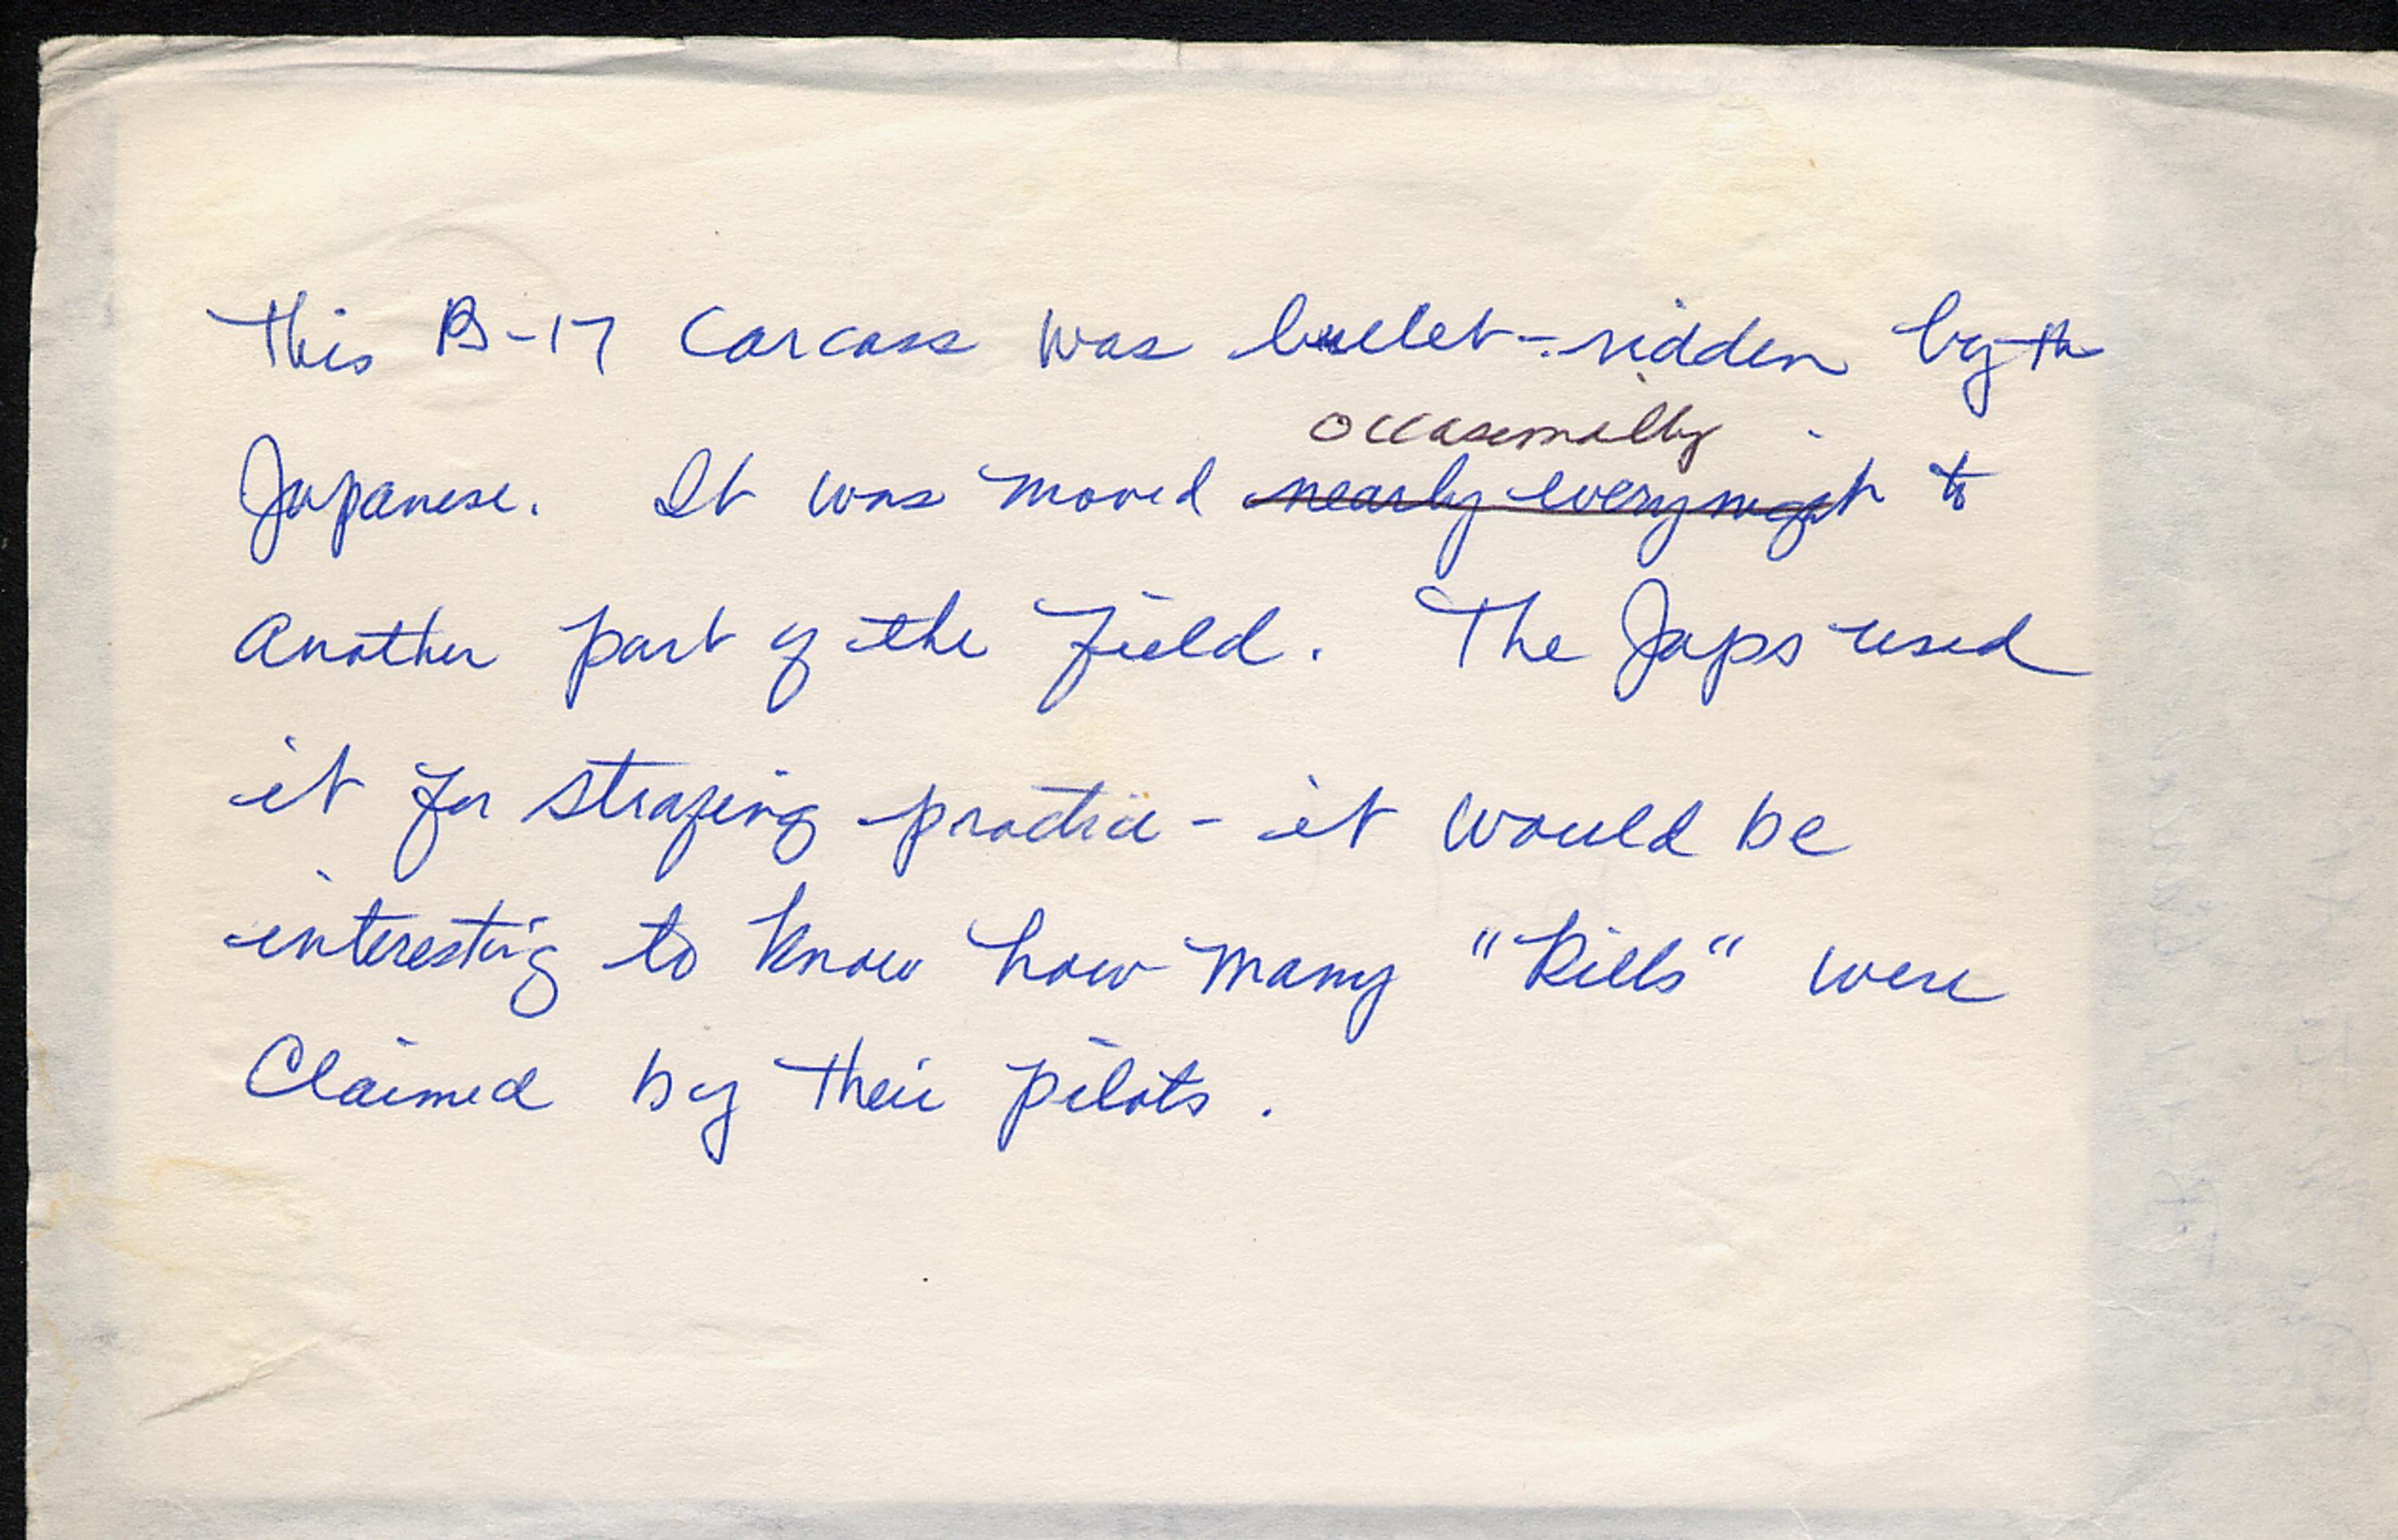 This B-17 Carcass was bullet-ridden by the
occasionally
Japanese. It was moved nearly every night to
Another part of the field. The Japs used
it for strafing practice - it would be
interesting to know how many "Kills" were
Claimed by their pilots.